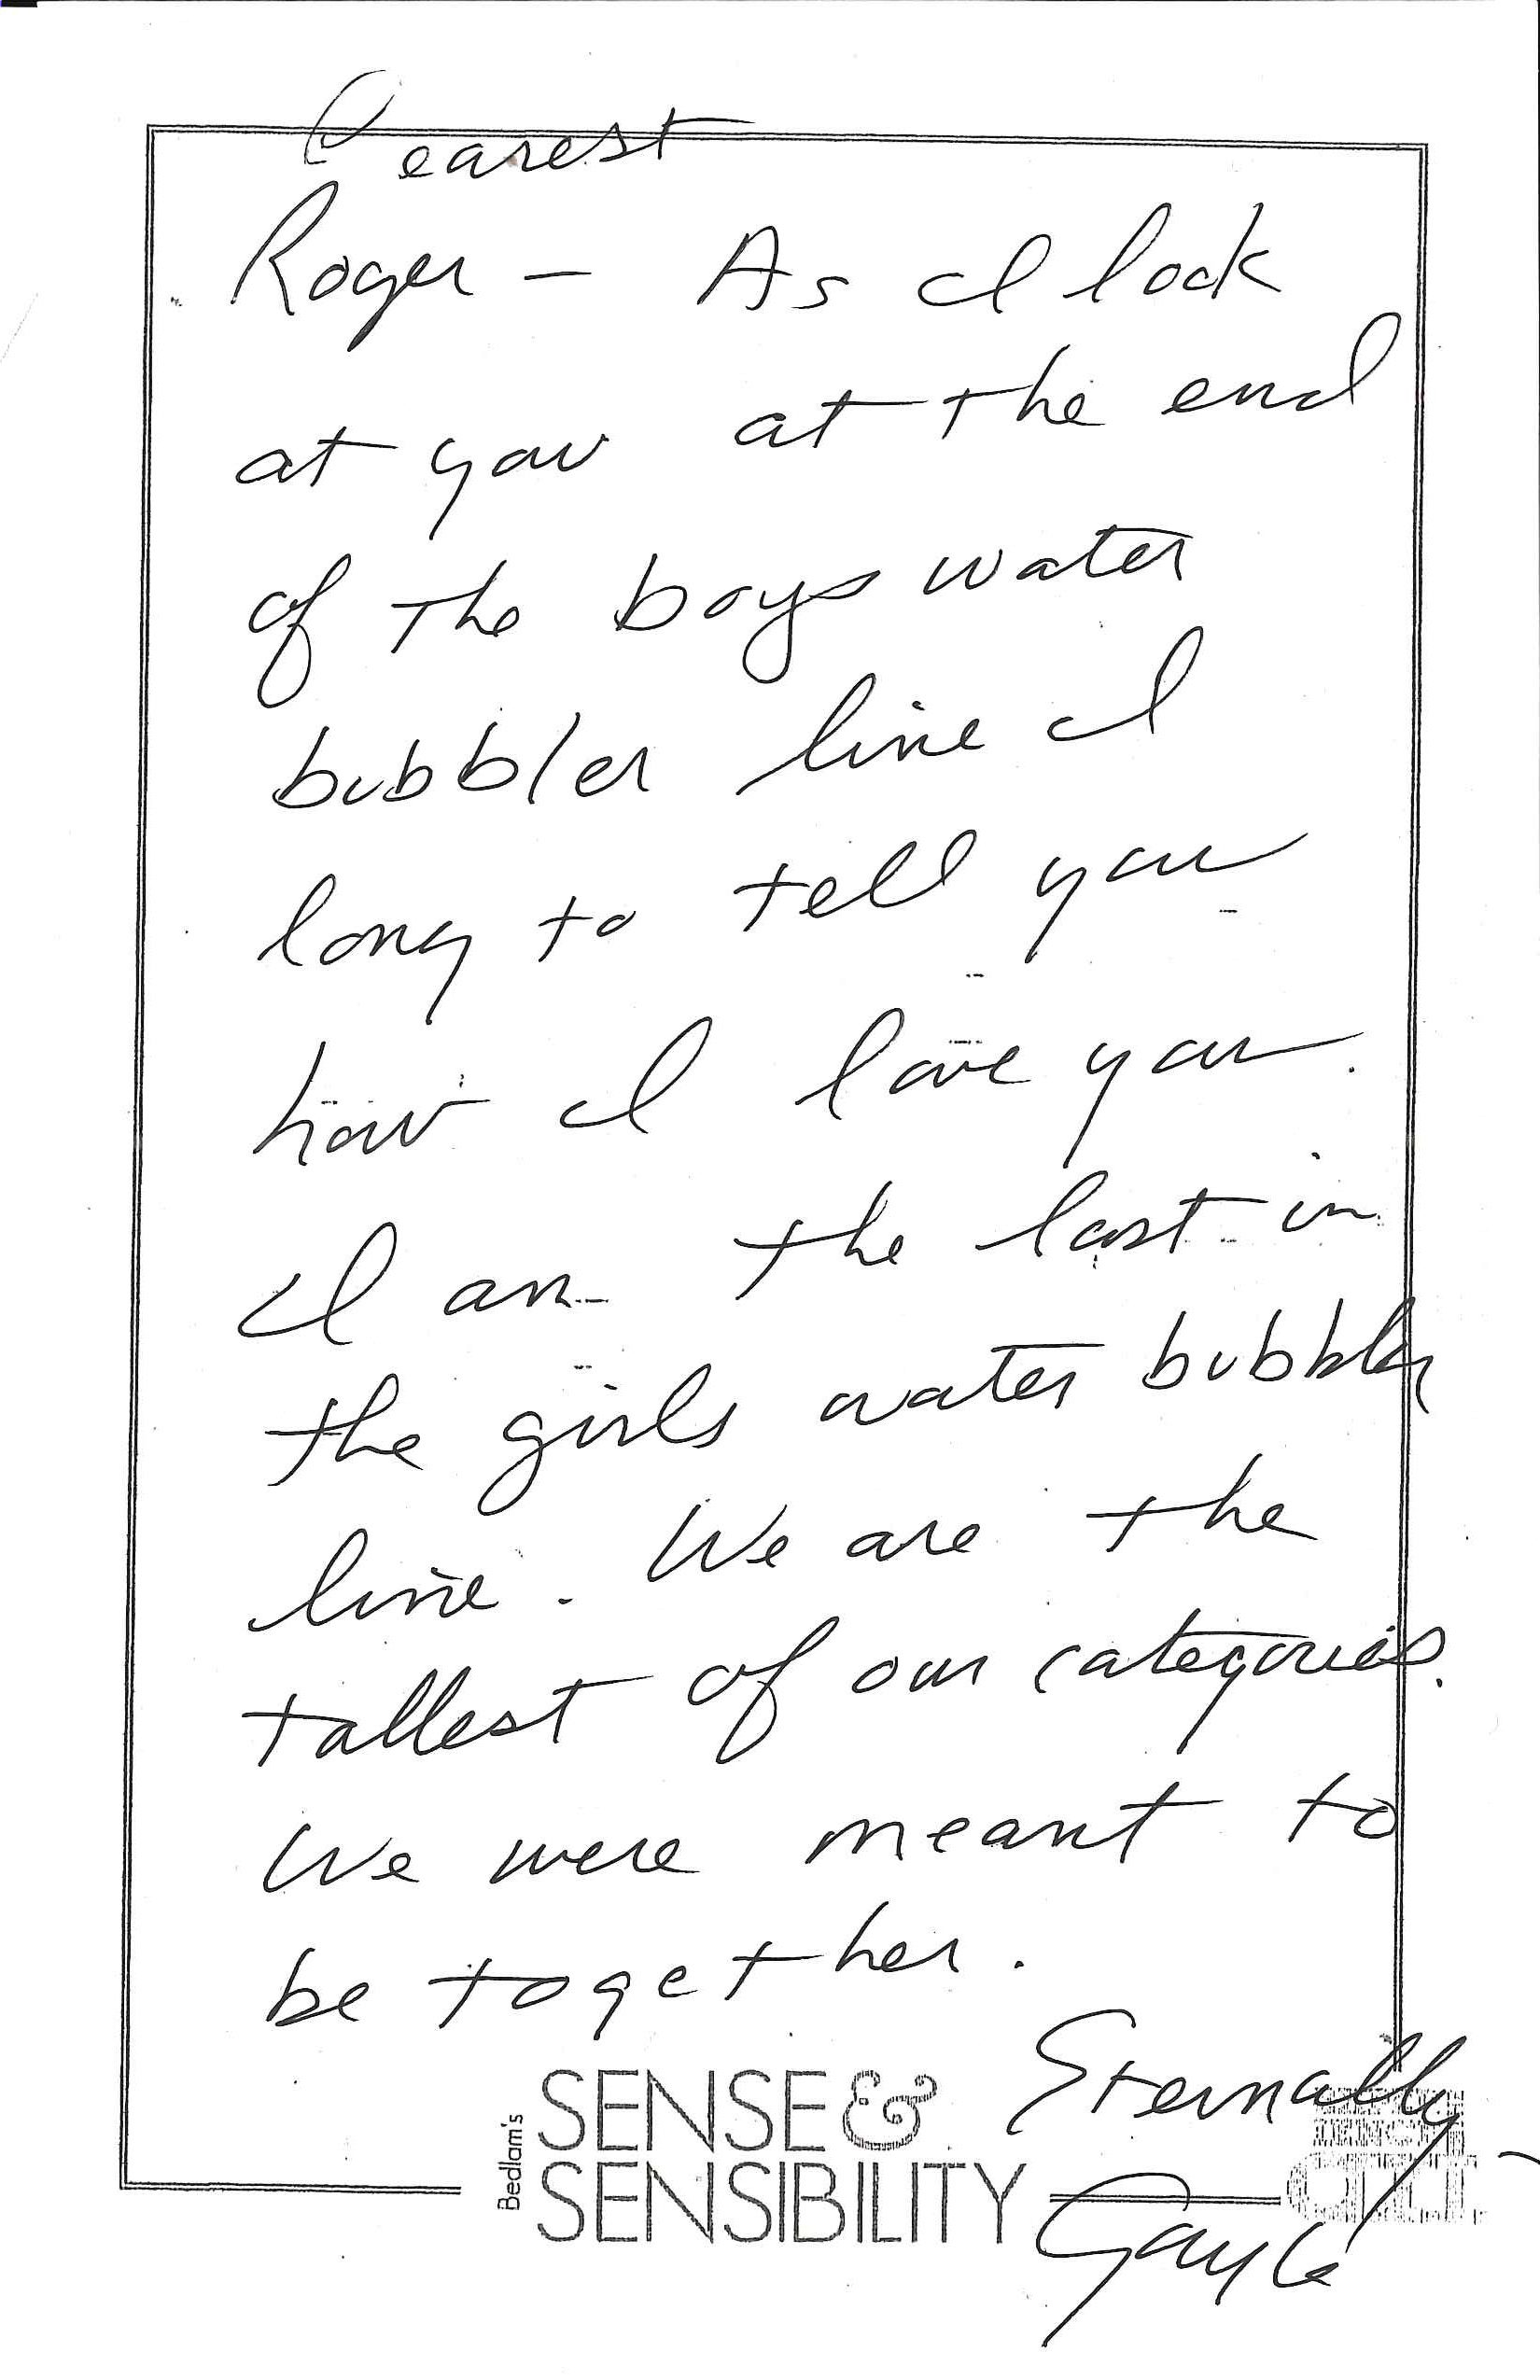 Dearest
Roger – As I look
at you at the end
of the boys water
bubbler line I
long to tell you
how I love you.
I am the last in
the girls water bubbler
line. We are the
tallest of our categories.
We were meant to
be together.
Eternally
Gayle
Bedlam's
SENSE &
SENSIBILITY